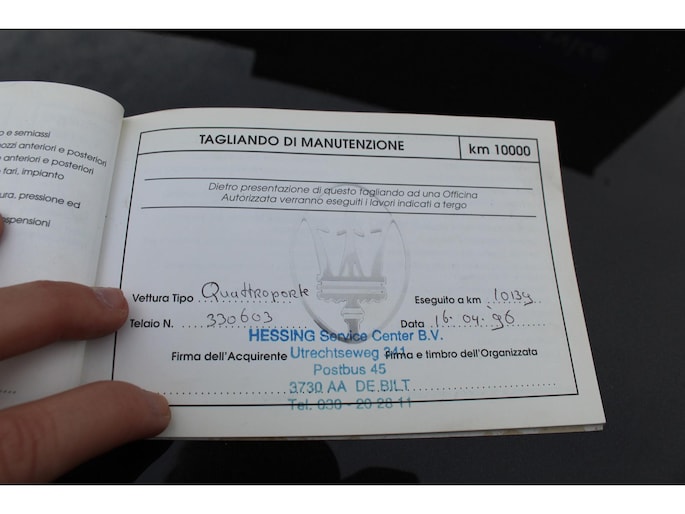 o e semiassi
ozzi anteriori e posteriori
anteriori e posteriori
fari, impianto
ura, pressione ed
spensioni
TAGLIANDO DI MANUTENZIONE
km 10000
Dietro presentazione di questo tagliando ad una Officina
Autorizzata verranno eseguiti i lavori indicati a tergo
Vettura Tipo Quattroporte Eseguito a km 10139
Telaio N. 330603 Data 16.04.96
HESSING Service Center B.V.
Firma dell'Acquirente Utrechtseweg 341 Firma e timbro dell'Organizzata
Postbus 45
3730 AA DE BILT
Tel. 030 - 20 28 11